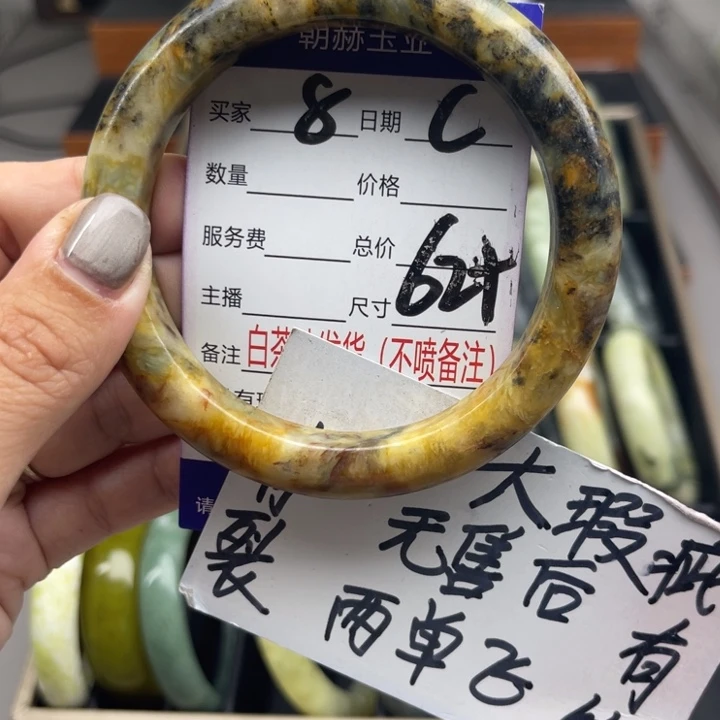 朝赫玉业
买家 8 日期 C
数量 价格
服务费 总价
主播 尺寸 62+
备注 白茶 发货（不喷备注）
有
请
大瑕疵
无售后 有
裂 两单飞